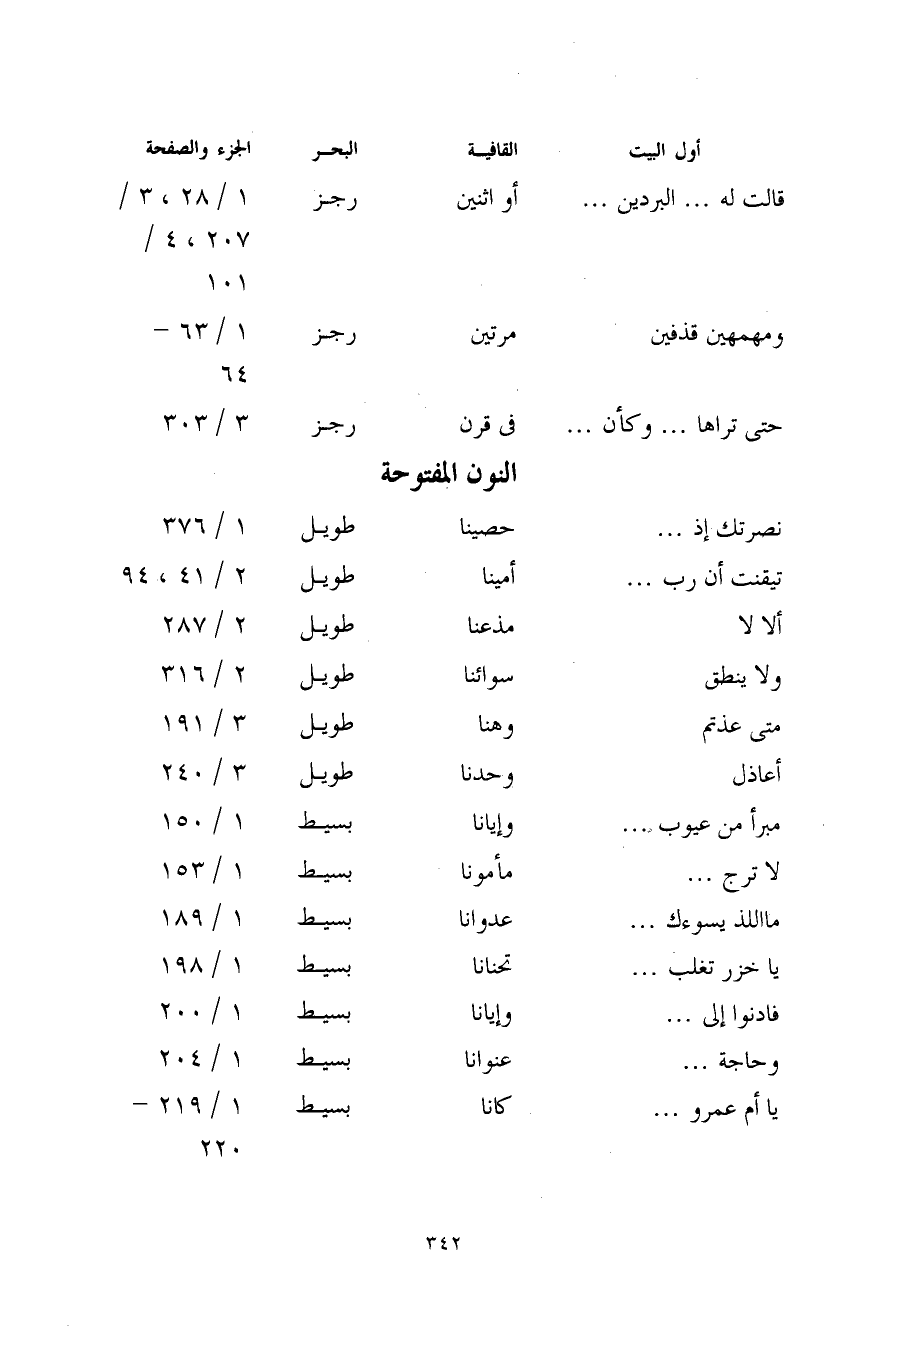 أول البيت القافيــة البحــر الجزء والصفحة
قالت له ... البردين ... أو اثنين رجـز ١ / ٢٨ ، ٣ /
٢٠٧ ، ٤ /
١٠١
ومهمهين قذفين مرتين رجـز ١ / ٦٣ –
٦٤
حتى تراها ... وكأن ... فى قرن رجـز ٣ / ٣٠٣
النون المفتوحة
نصرتك إذ ... حصينا طويـل ١ / ٣٧٦
تيقنت أن رب ... أمينا طويـل ٢ / ٤١ ، ٩٤
ألا لا مذعنا طويـل ٢ / ٢٨٧
ولا ينطق سوائنا طويـل ٢ / ٣١٦
متى عذتم وهنا طويـل ٣ / ١٩١
أعاذل وحدنا طويـل ٣ / ٢٤٠
مبرأ من عيوب ... وإيانا بسيـط ١ / ١٥٠
لا ترج ... مأمونا بسيـط ١ / ١٥٣
ماللذ يسوءك ... عدوانا بسيـط ١ / ١٨٩
يا خزر تغلب ... تحنانا بسيـط ١ / ١٩٨
فادنوا إلى ... وإيانا بسيـط ١ / ٢٠٠
وحاجة ... عنوانا بسيـط ١ / ٢٠٤
يا أم عمرو ... كانا بسيـط ١ / ٢١٩ –
٢٢٠
٣٤٢